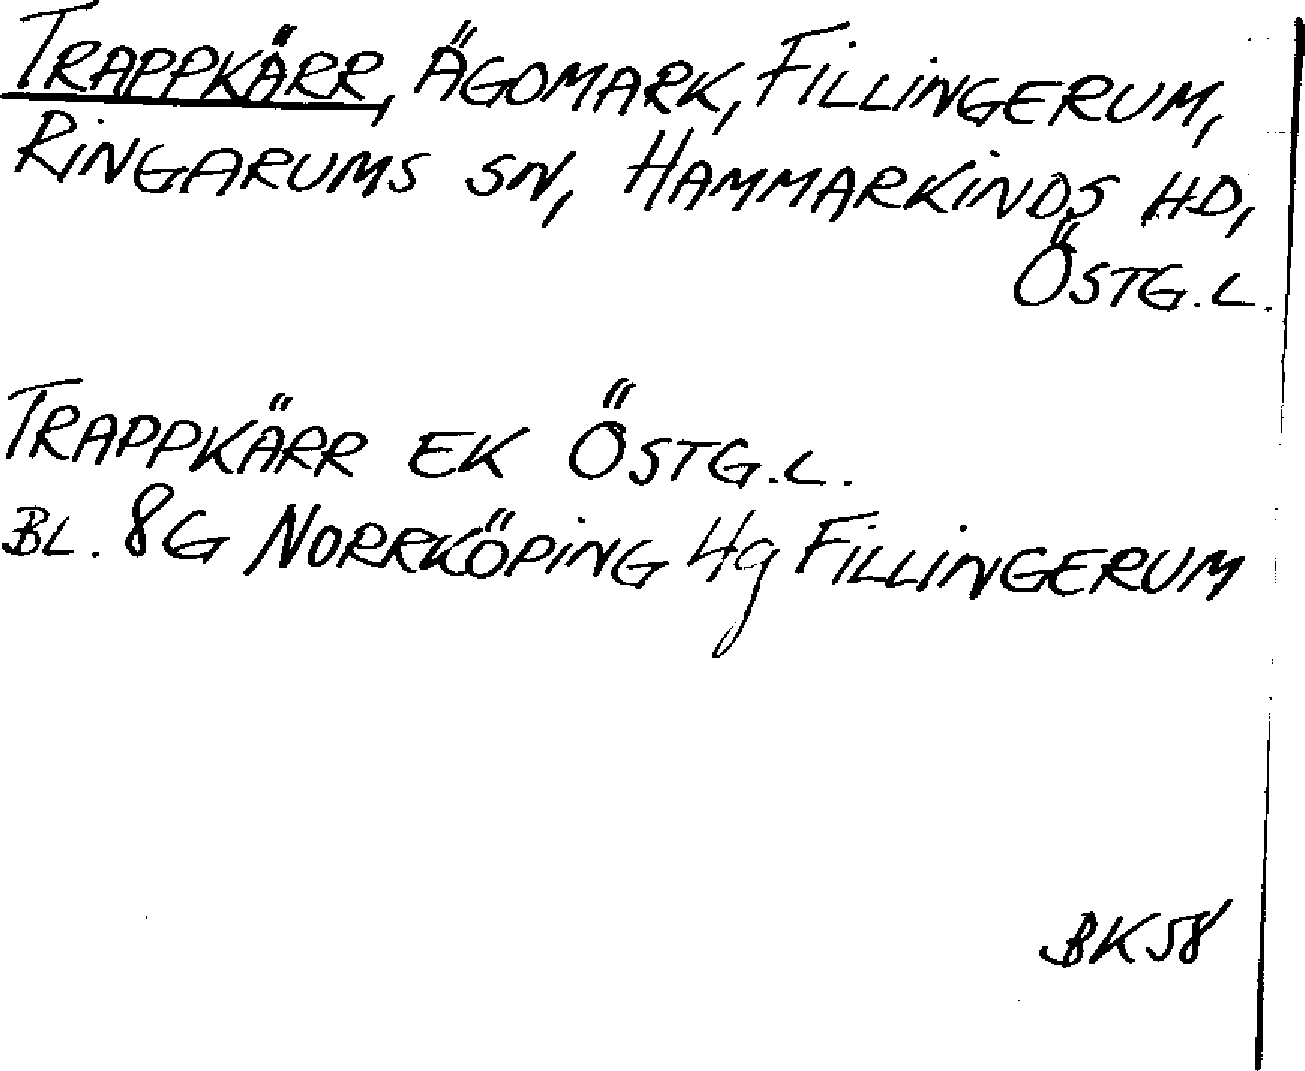 TRAPPKÄRR, ÄGOMARK, FILLINGERUM,
RINGARUMS SN, HAMMARKINDS HD,
ÖSTG.L.
TRAPPKÄRR EK ÖSTG.L.
BL. 8G NORRKÖPING 4g FILLINGERUM
BK58